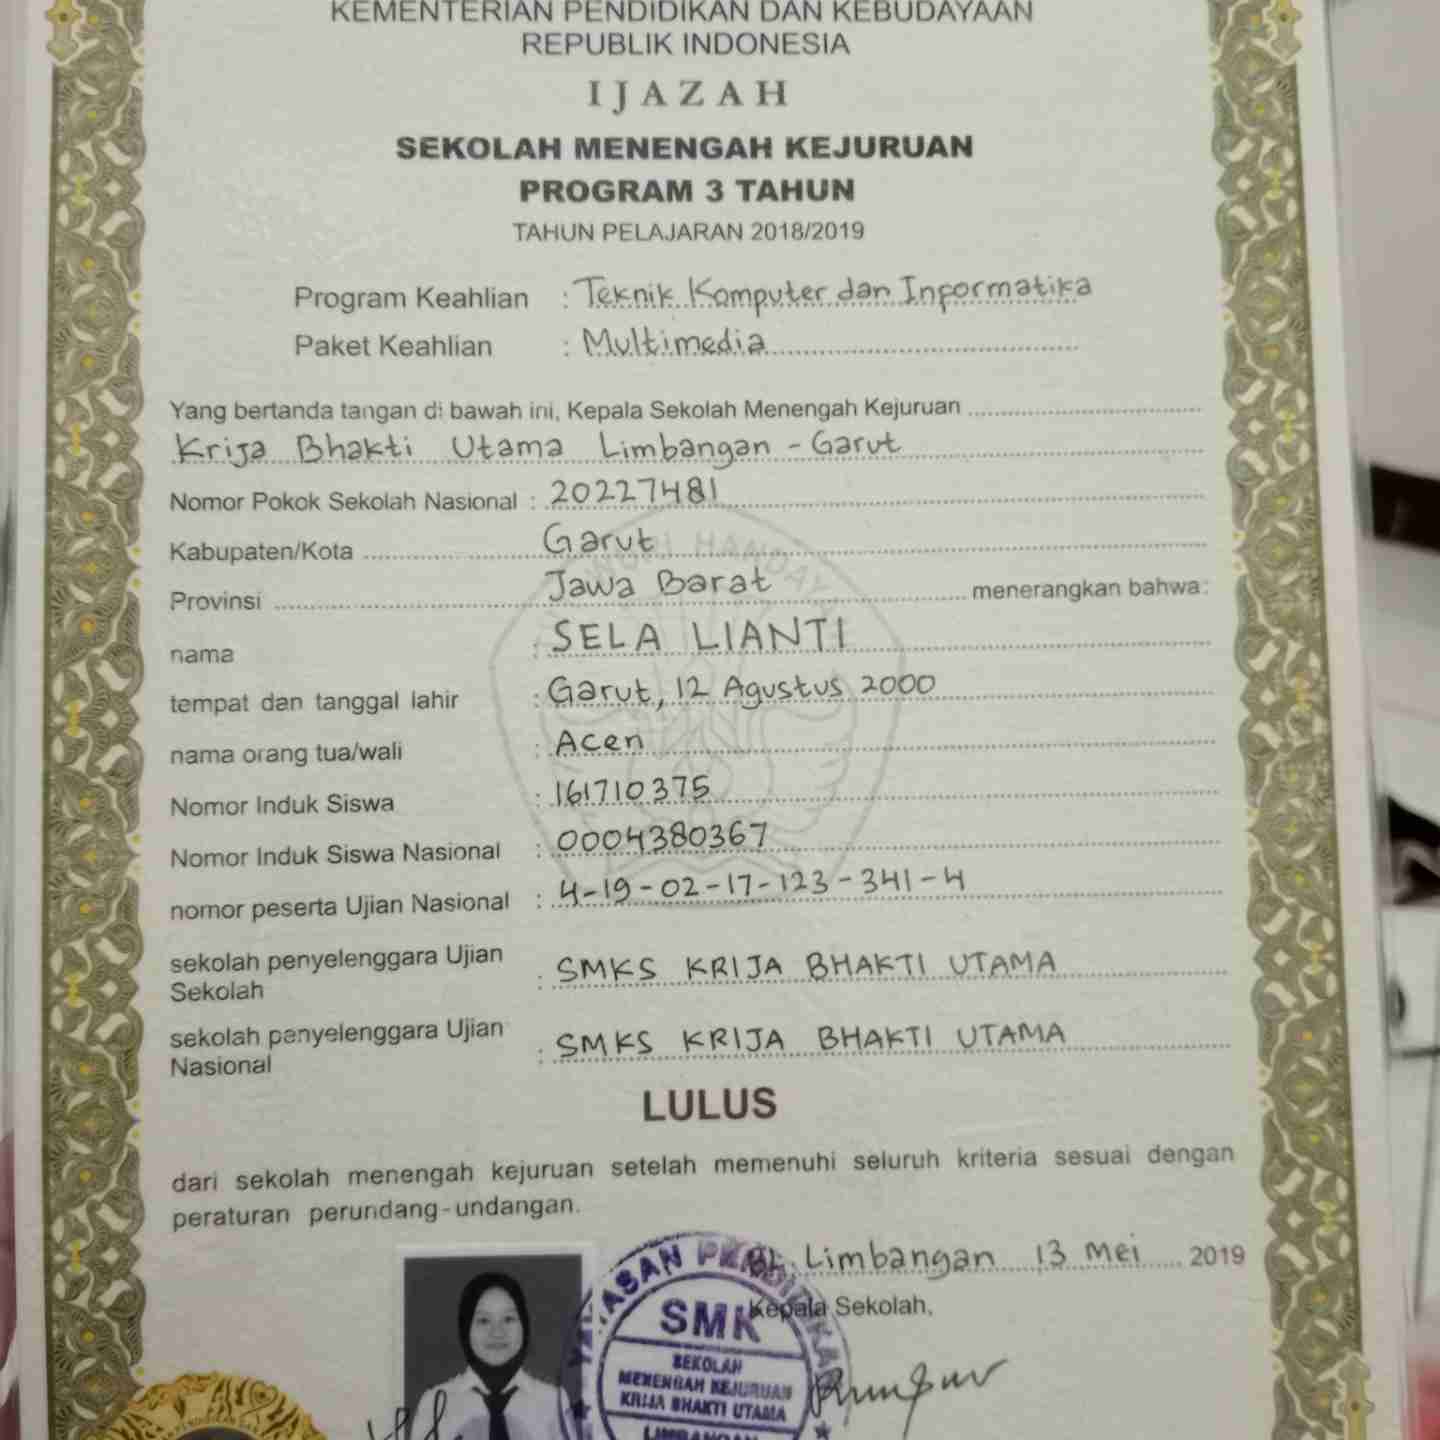 KEMENTERIAN PENDIDIKAN DAN KEBUDAYAAN
REPUBLIK INDONESIA
IJAZAH
SEKOLAH MENENGAH KEJURUAN
PROGRAM 3 TAHUN
TAHUN PELAJARAN 2018/2019
Program Keahlian : Teknik Komputer dan Informatika
Paket Keahlian : Multimedia
Yang bertanda tangan di bawah ini, Kepala Sekolah Menengah Kejuruan
Krija Bhakti Utama Limbangan - Garut
Nomor Pokok Sekolah Nasional : 20227481
Kabupaten/Kota Garut
Provinsi Jawa Barat menerangkan bahwa:
nama : SELA LIANTI
tempat dan tanggal lahir : Garut, 12 Agustus 2000
nama orang tua/wali : Acen
Nomor Induk Siswa : 161710375
Nomor Induk Siswa Nasional : 0004380367
nomor peserta Ujian Nasional : 4-19-02-17-123-341-4
sekolah penyelenggara Ujian
Sekolah : SMKS KRIJA BHAKTI UTAMA
sekolah penyelenggara Ujian
Nasional : SMKS KRIJA BHAKTI UTAMA
LULUS
dari sekolah menengah kejuruan setelah memenuhi seluruh kriteria sesuai dengan
peraturan perundang-undangan.
Bl. Limbangan 13 Mei 2019
Kepala Sekolah,
YAYASAN PENDIDIKAN
SMK
SEKOLAH
MENENGAH KEJURUAN
KRIJA BHAKTI UTAMA
LIMBANGAN